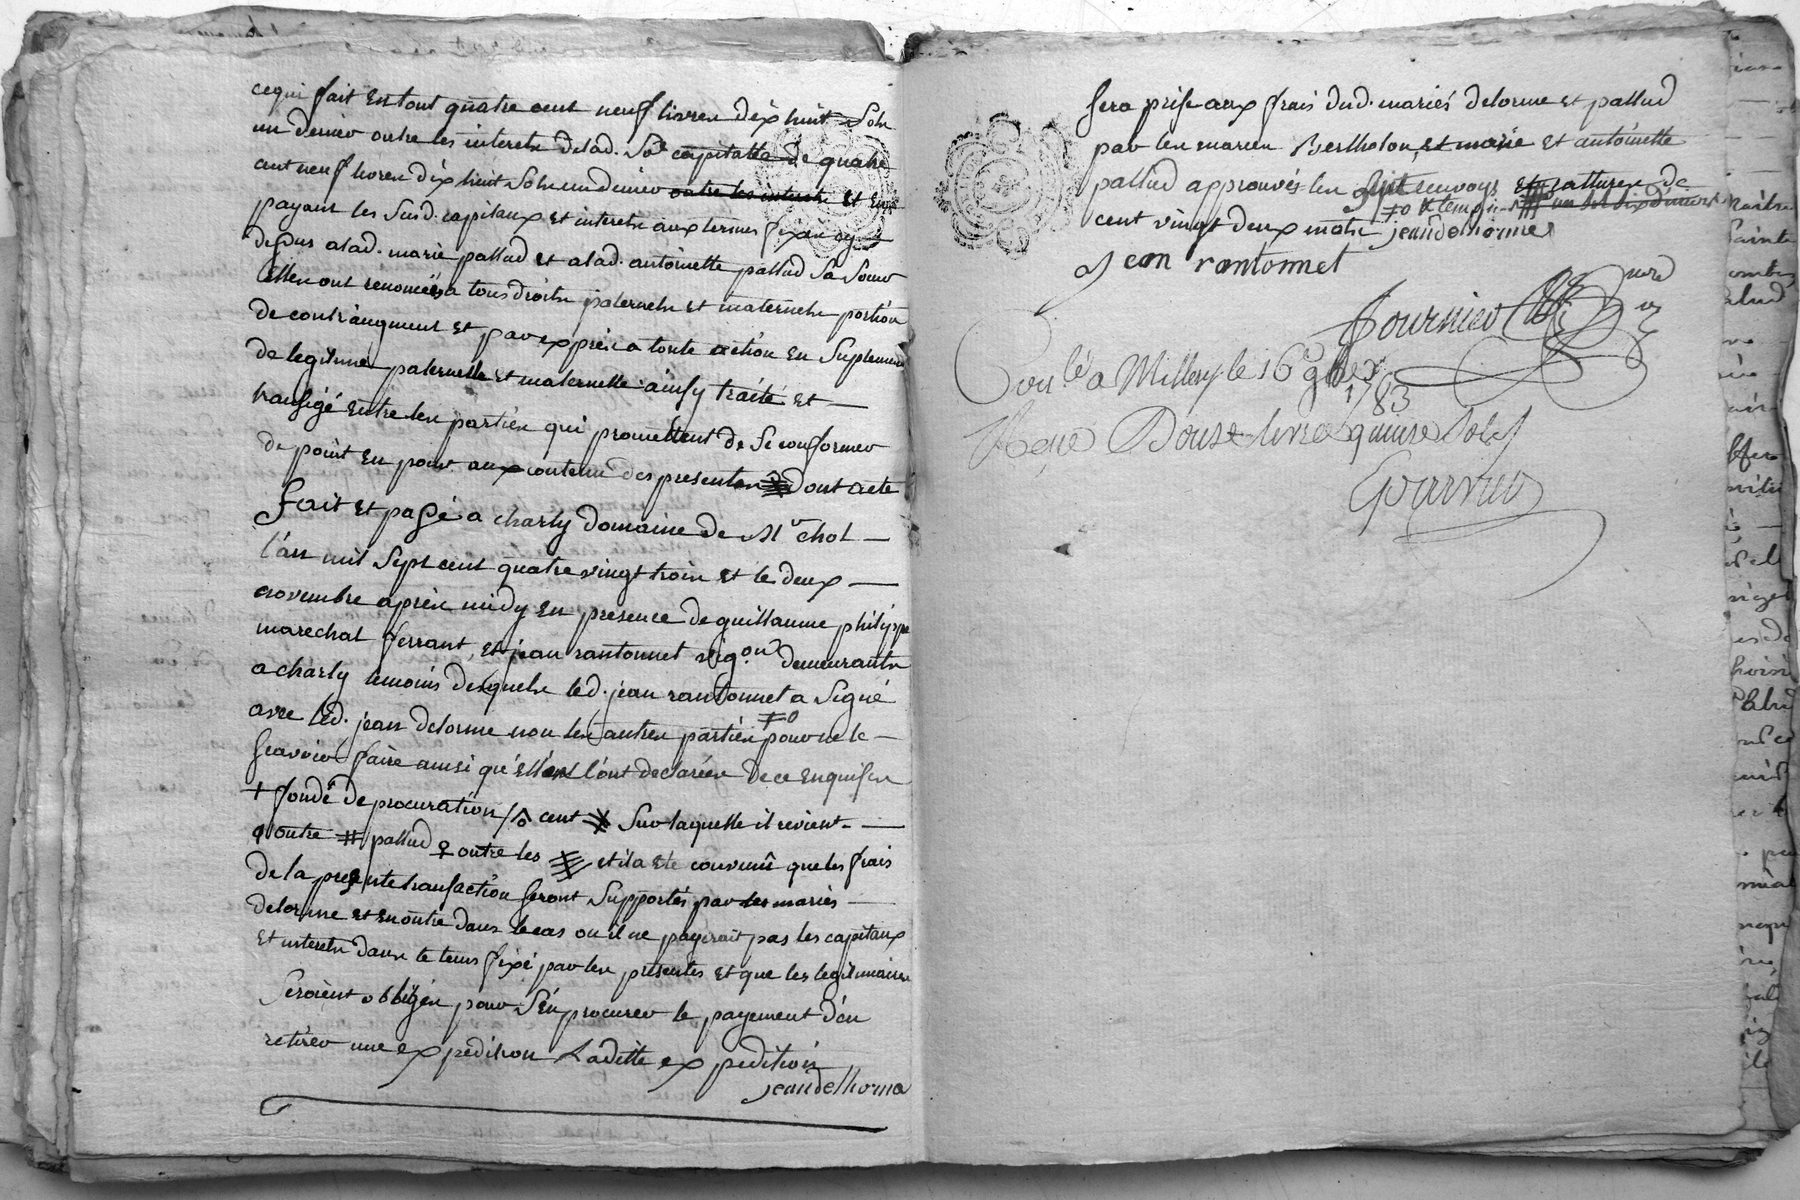 cequi fait en tout quatre cent neuf livres dix huit sols
un denier outre les interets delad. so.e capitalle de quatre
cent neuf livres dix huit sols un denier outre les interets et en
payant les susd. capitaux et interets aux termes fixés cy
dessus alad. marie pallud et alad. antoinette pallud sa soeur
elles ont renoncées a tous droits paternels et maternels portion
de contrangment et par exprès a toute action en suplement
de legitime paternelle et maternelle ainsy traité et
transigé entre les parties qui promettent de se conformer
de point en point aux contenu des presentes dont acte
fait et passé a charly domaine de Mr chol
l'an mil sept cent quatre vingt trois et le deux
novembre après midy en presence de guillaume philippe
marechal ferrant, et jean rantonnet vig.on demeurants
a charly temoins desquels led. jean rantonnet a signé
avec led. jean delorme non les autres parties pour ne le
scavoir faire ainsi qu'elles l'ont declarées de ce enquises
+ fondé de procuration /ô cent sur laquelle il revient
φ outre # pallud ♀ outre les et il a ete convenû que les frais
de la presente transaction seront supportés par les mariés
delorme et en outre dans le cas ou il ne payerait pas les capitaux
et interets dans le tems fixé par les presentes et que les legitimaires
seroient obligés pour s'en procurer le payement d'en
retirer une expedition laditte expedition
jeandelhorme
sera prise aux frais dud. mariés delorme et pallud
par les mariés Bertholon, et marie et antoinette
pallud approuvés les sept renvoys et ratures de
≠o & temoins
cent vingt deux mots jeandelhorme
Jean rantonnet
Fournier nore
Con.lé a Millery le 16 9bre
1783
Reçu Douze livres quinze sols
Fournier